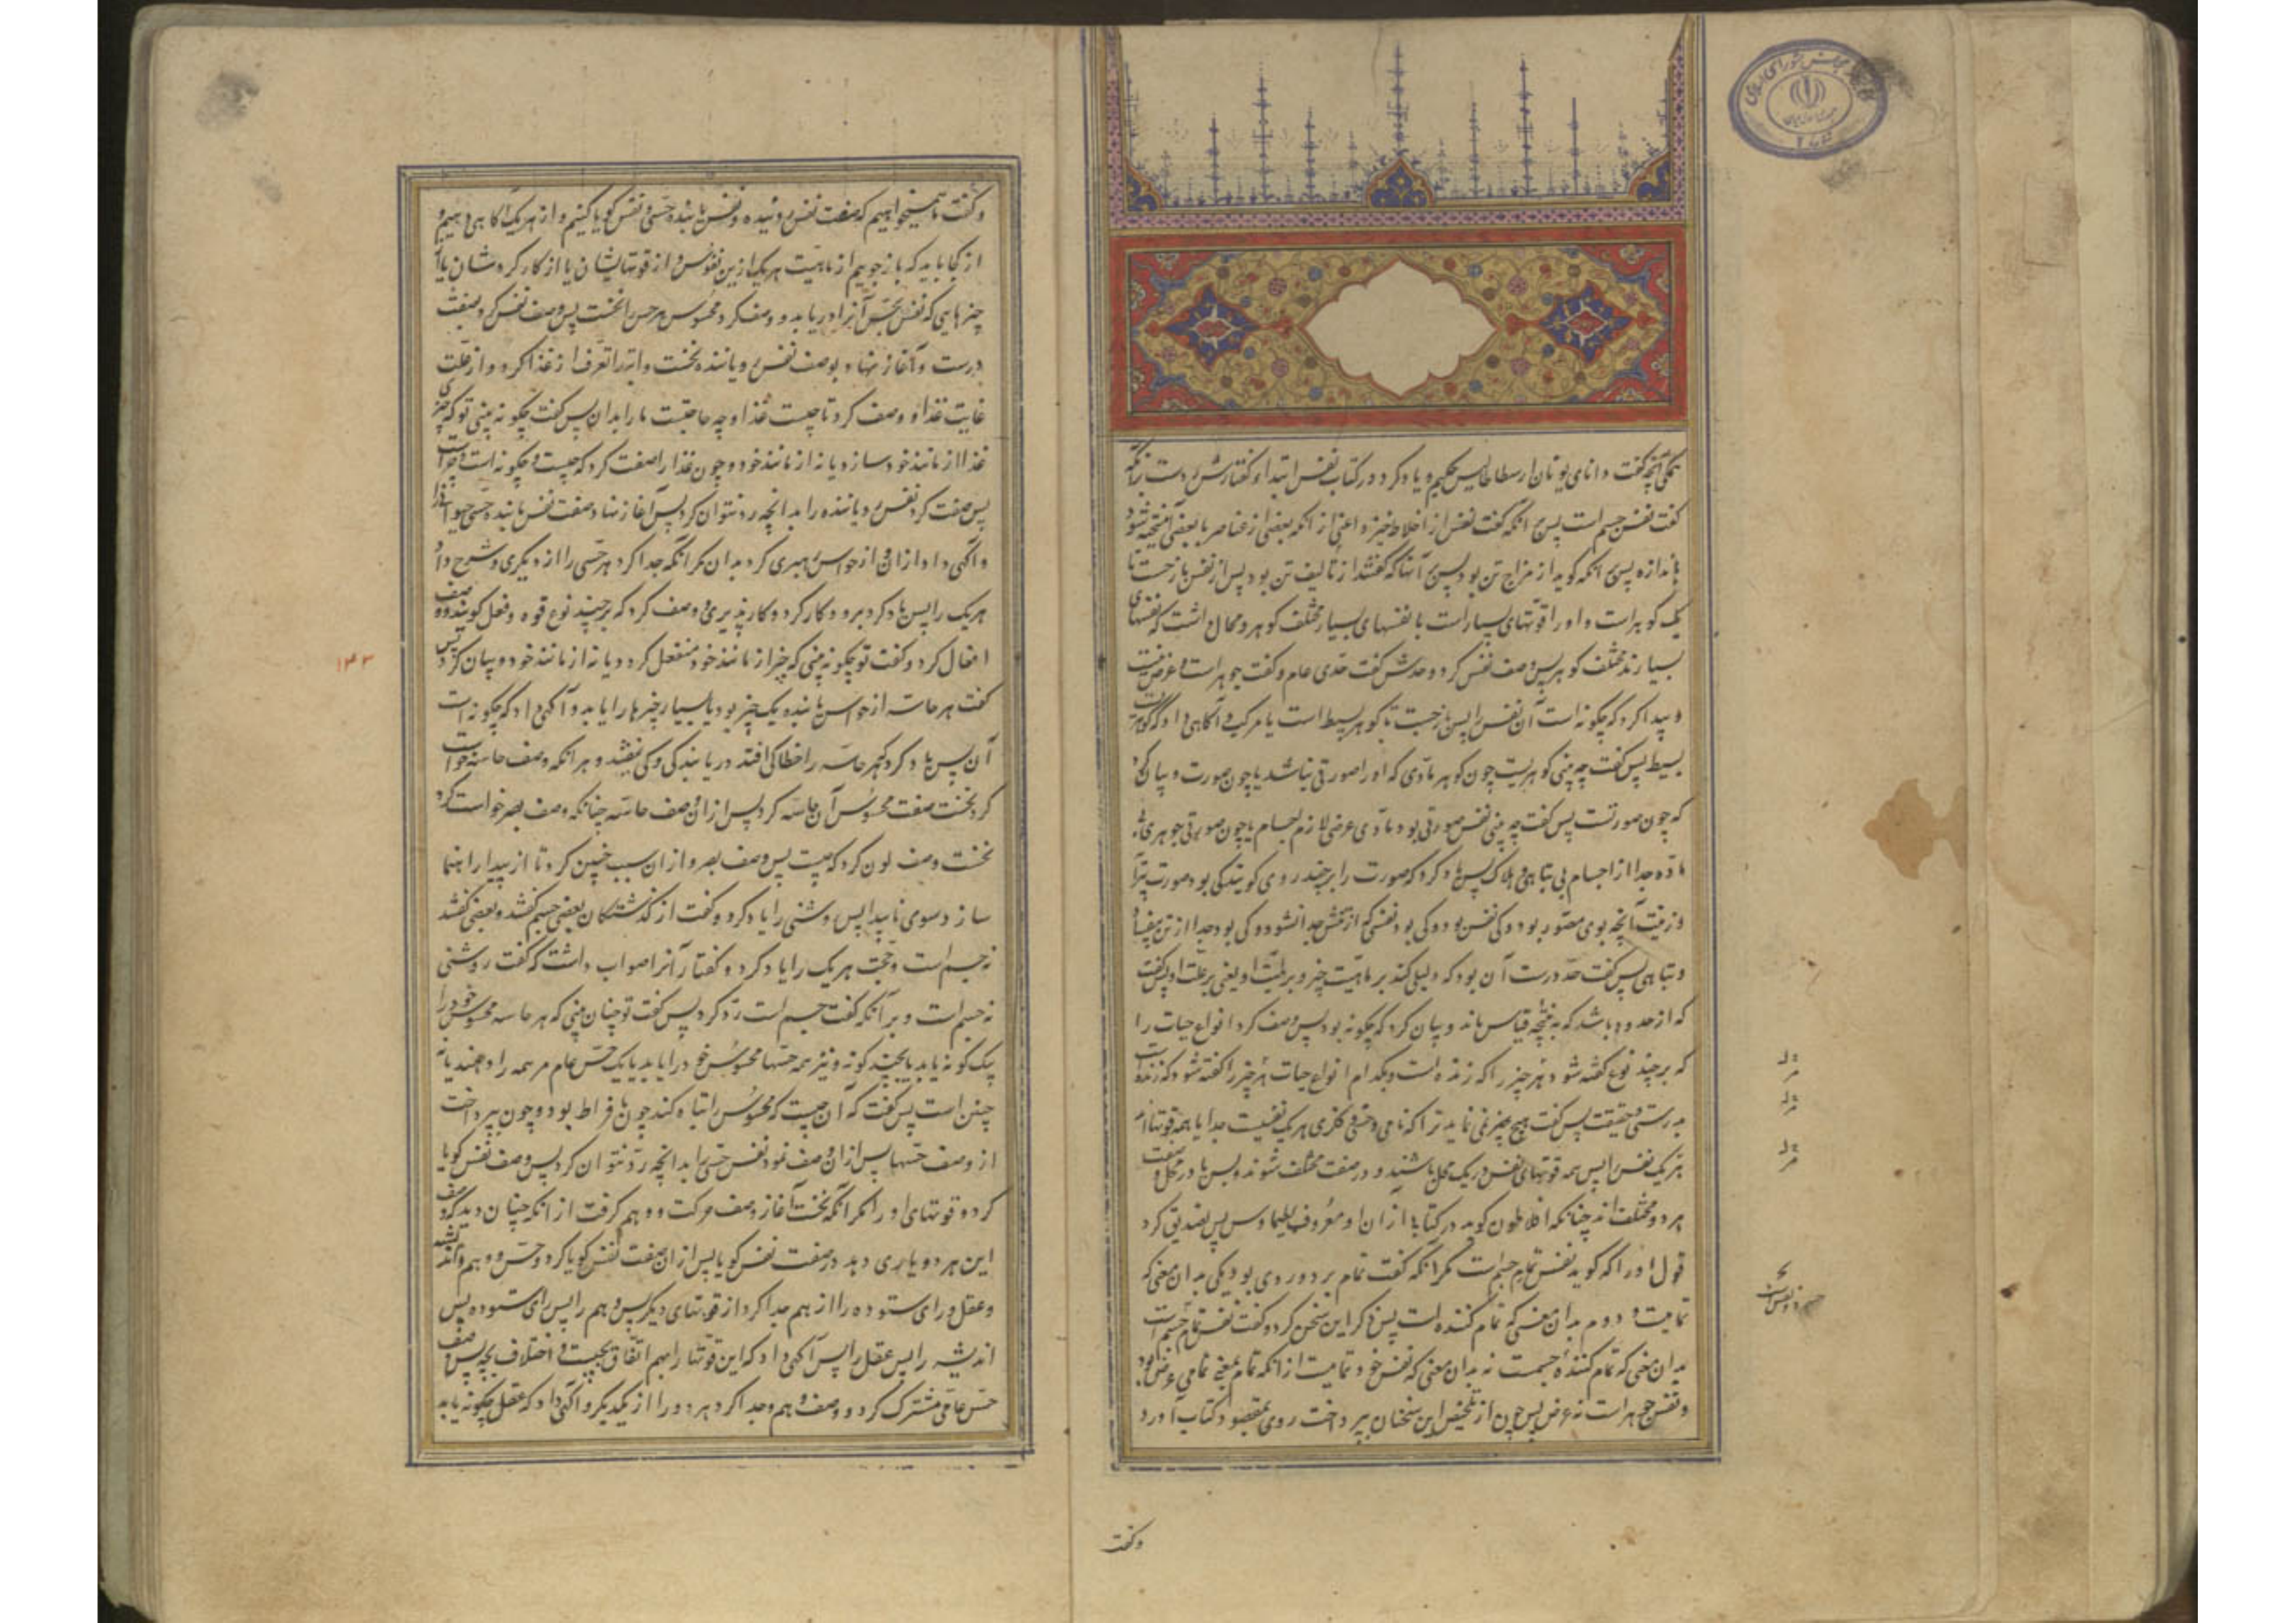 همگی آنچه گفت دانای یونان ارسطاطالیس حکیم و یاد کرد در کتاب نفس ابتداء گفتارش دست بر آنکه
گفت نفس جسم است پس آنکه گفت نفس از اخلاط خیزد اعنی از آنکه بعضی از عناصر با بعضی آمیخته شود
باندازه پس آنکه گوید از مزاج تن بود پس آنها که گفتند از تألیف تن بود پس از نفس بازجست تا
یک گوهر است و او را قوتهای بسیار است یا نفسهای بسیار مختلف گوهر و محال داشت که نفسهای
بسیارند مختلف گوهر پس وصف نفس کرد و حدش گفت حدی عام و گفت جوهر است و عرض نیست
و پیدا کرد که چگونه است آن نفس را پس بازجست تا گوهر بسیط است یا مرکب و آگاهی داد که گوهریست
بسیط پس گفت چه بینی گوهریست چون گوهر مادی که او را صورتی نباشد یا چون صورت و بیان کرد
که چون صورتست پس گفت چه بینی نفس صورتی بود مادی عرضی لازم اجسام یا چون صورتی جوهری نه
ماده جدا از اجسام بی تباهی و هلاک پس یاد کرد که صورت را بر چند روی گویند کی بود صورت تمام
و زینت آنچه بوی مصور بود و کی نفس بود و کی بود نفسی که از تنش جدا نشود و کی بود جدا از تن بی فساد
و تباهی پس گفت حد درست آن بود که دلیلی کند بر ماهیت چیز و بر لمیت او یعنی بر علت او پس گفت
که از حدود باشد که به نتیجه قیاس ماند و بیان کرد که چگونه بود پس وصف کرد انواع حیات را
که بر چند نوع گفته شود هر چیز را که زنده است و بکدام انواع حیات هر چیز را گفته شود که زنده است
بدرستی و حقیقت پس گفت هیچ چیز نمی نماید ترا که نامی و حسی و فکری هر یک نفسیست جدا یا همه قوتها اند
هر یک نفس را پس همه قوتهای نفس در یک محل باشند و در صفت مختلف شوند و بس یا در محل و صفت
هر دو مختلف اند چنانکه افلاطون گوید در کتابها از آن او معروف بطیماوس پس تصدیق کرد
قول او را که گوید نفس تمام جسم است مگر آنکه گفت تمام بر دو روی بود یکی بدان معنی که
تمامیت و دوم بدان معنی که تمام کننده است پس ذکر این سخن کرد و گفت نفس تمام جسم است
بدان معنی که تمام کنندهٔ جسمست نه بدان معنی که نفس خود تمامیت از آنکه تمام بمعنی تمامی عرض بود
و نفس جوهر است نه عرض پس چون از تلخیص این سخنان بپرداخت روی بمقصود کتاب آورد
وگفت
و گفت ما همیخواهیم که صفت نفس روینده و نفس یابنده حسی و نفس گویا کنیم و از هر یک آگاهی دهیم و
از کجا باید که بازجوییم از ماهیت هر یک ازین نفوس و از قوتهایشان یا از کارکردشان یا از
چیزهایی که نفس بحس آنرا دریابد و وصف کرد محسوس هر حس را نخست پس وصف نفس کرد صفت
درست و آغاز نهاد بوصف نفس رویاننده نخست و ابتدا تعرف از غذا کرد و از علت
غایت غذا و وصف کرد تا چیست غذا و چه حاجتست ما را بدان پس گفت چگونه بینی تو که چیزی
غذا از مانند خود سازد یا نه از مانند خود و چون غذا را صفت کرد که چیست و چگونه است و چراست
پس صفت کرد نفس رویاننده را بدانچه رد نتوان کرد پس آغاز نهاد صفت نفس یابنده حسی حیوانی را
و آگهی داد از آن و از حواس رهبری کرد بدان مگر آنگه جدا کرد هر حسی را از دیگری و شرح داد
هر یک را پس یاد کرد نیرو و کارکرد و کارپذیری و وصف کرد که بر چند نوع قوه و فعل گویند و وصف
افعال کرد و گفت تو چگونه بینی که چیز از مانند خود منفعل گردد یا نه از مانند خود و بیان کرد پس
گفت هر حاسه از حواس یابنده یک چیز بود یا بسیار چیزها را یابد و آگهی داد که چگونه است
آن پس یاد کرد که هر حاسه را خطا کی افتد در یابندگی و کی نیفتد و هر آنکه وصف حاسه خواست
کرد نخست صفت محسوس آن حاسه کرد پس از آن وصف حاسه چنانکه وصف بصر خواست کرد
نخست وصف لون کرد که چیست پس وصف بصر و از آن سبب چنین کرد تا از پیدا راهنما
سازد سوی ناپیدا پس روشنی را یاد کرد و گفت از گذشتگان بعضی جسم گفتند و بعضی گفتند
نه جسم است و حجت هر یک را یاد کرد و گفتار آنرا صواب داشت که گفت روشنی
نه جسم است و بر آنکه گفت جسم است رد کرد پس گفت تو چنان بینی که هر حاسه محسوس خود را
یک گونه یابد یا چند گونه و نیز همه حسها محسوس خود را یابد یا یک حس عام مر همه را دهند یا نه
چنین است پس گفت که آن چیست که محسوس را تباه کند چون بافراط بود و چون بپرداخت
از وصف حسها پس از آن وصف نمود نفس حسی را بدانچه رد نتوان کرد پس وصف نفس گویا
کرد و قوتهای او را مگر آنگه نخست آغاز وصف حرکت و وهم گرفت از آنکه چنان دید که وصف
این هر دو یاری دهد در صفت نفس گویا پس از آن صفت نفس گویا کرد و حس و وهم و اندیشه
و عقل و رای ستوده را از هم جدا کرد از قوتهای دیگر پس وهم را پس رای ستوده پس
اندیشه را پس عقل را پس آگهی داد که این قوتها را بهم اتفاق بچیست و اختلاف بچه پس وصف
حس عامی مشترک کرد و وصف وهم و جدا کرد هر دو را از یکدیگر و آگهی داد که عقل چگونه یابد
۱۴۳